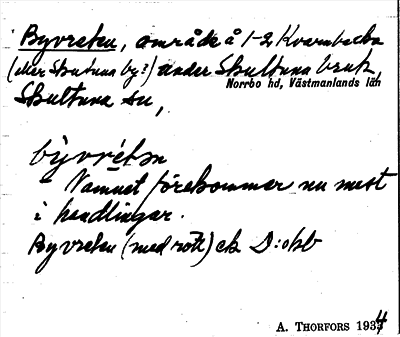 Byvreten, område å 1-2 Kvarnbacka
(eller Skultuna by?) under Skultuna bruk,
Norrbo hd, Västmanlands län
Skultuna sn,
bỳvrétən
Namnet förekommer nu mest
i handlingar.
Byvreten (med rött) ek D:okb
A. THORFORS 1934